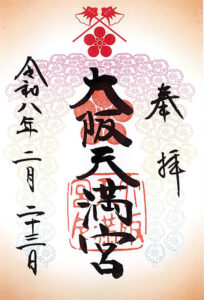 奉拝
大阪天満宮
令和八年二月二十三日